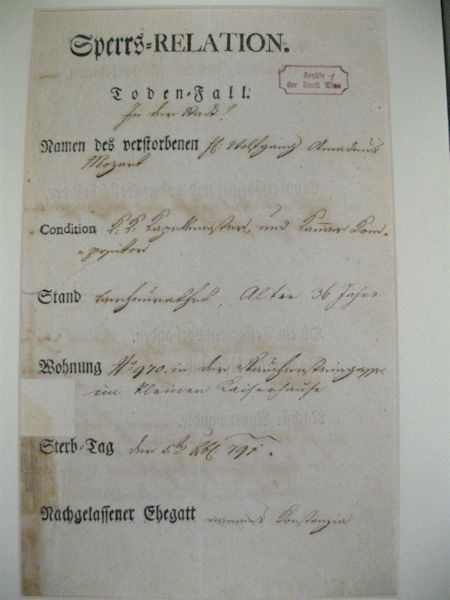 Sperrs=RELATION.
Archiv
der Stadt Wien
Toden=Fall.
In der Stadt
Namen des verstorbenen H: Wolfgang Amadeus
Mozart
Condition K. K. Kapellmeister, und Kammer Com=
=positor
Stand verheurathet Alter 36 Jahre
Wohnung N: 970. in der Rauhensteingasse
im kleinen Kaiserhause
Sterb=Tag den 5ten 791.
Nachgelassener Ehegatt Konstanzia